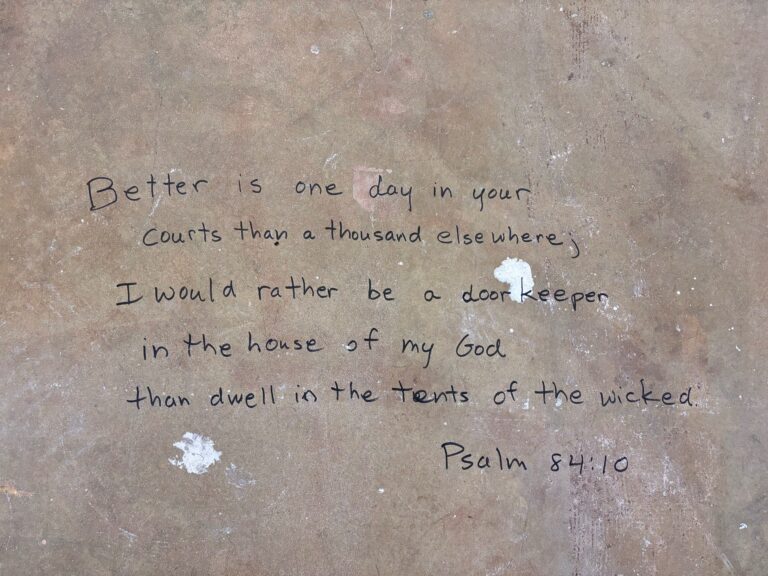 Better is one day in your
courts than a thousand elsewhere;
I would rather be a doorkeeper
in the house of my God
than dwell in the tents of the wicked.
Psalm 84:10